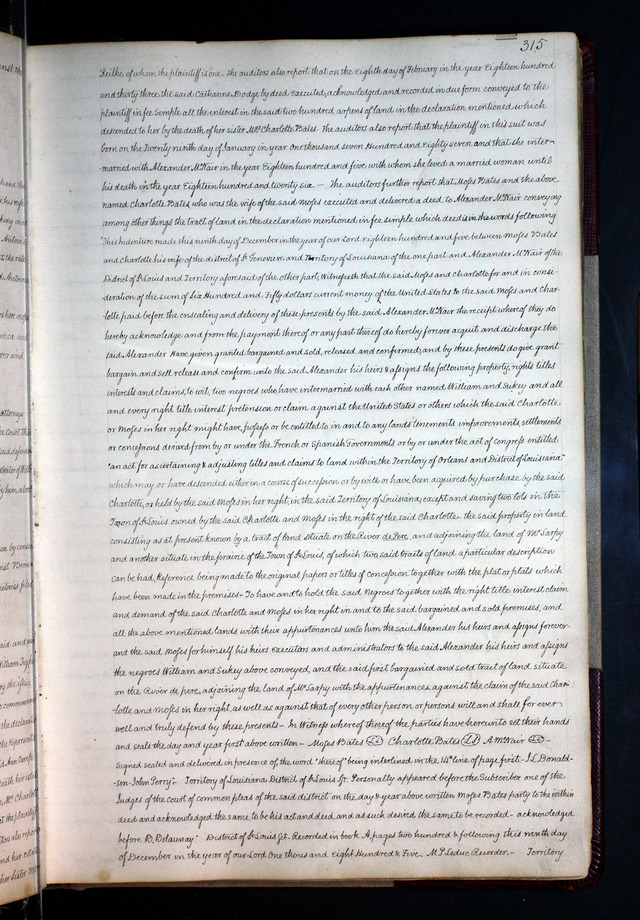 315
Reilhe of whom the plaintiff is one. The auditors also report that on the Eighth day of February in the year Eighteen hundred
and thirty three the said Catharine Dodge by deed Executed, acknowledged and recorded in due form conveyed to the
plaintiff in fee Semple all the interest in the said two hundred arpens of land in the declaration mentioned which
descended to her by the death of her sister Mrs Charlotte Bates. The auditors also report that the plaintiff in this suit was
born on the Twenty ninth day of January in year One thousand seven Hundred and Eighty seven and that she inter-
-married with Alexander McNair in the year Eighteen hundred and five with whom she lived a married woman until
his death in the year Eighteen hundred and twenty six — The auditors further report that Moses Bates and the above
named Charlotte Bates, who was the wife of the said Moses executed and delivered a deed to Alexander McNair conveying
among other things the tract of land in the declaration mentioned in fee simple which deed is in the words following
"This Indenture made this ninth day of December in the year of our Lord Eighteen hundred and five between Moses Bates
and charlotte his wife of the district of St Genevieve and Territory of Louisiana of the one part and Alexander McNair of the
District of St Louis and Territory aforesaid of the other part, Witnesseth that the said Moses and charlotte for and in consi-
deration of the sum of Six Hundred and Fifty dollars current money of the United States to the said Moses and Char-
lotte paid before the ensealing and delivery of these presents by the said Alexander McNair the receipt whereof they do
hereby acknowledge and from the payment thereof or any part thereof do hereby forever acquit and discharge the
said Alexander Have given granted bargained and sold, released and confirmed, and by these presents do give grant
bargain and sell release and confirm unto the said Alexander his heirs & assigns the following property, rights titles
interests and claims, to wit, two negroes who have intermarried with each other named William and Sukey and all
and every right title interest pretension or claim against the United States or others which the said Charlotte
or Moses in her right might have, possess or be entitled to in and to any lands tenements improvements settlements
or concessions derived from by or under the French or Spanish Governments or by or under the act of congress entitled
"an act for ascertaining & adjusting titles and claims to land within the Territory of Orleans and District of Louisiana"
which may or have descended either in a course of succession or by will or have been acquired by purchase by the said
Charlotte, or held by the said Moses in her right, in the said Territory of Louisiana, except and saving two lots in the
Town of St Louis owned by the said Charlotte and Moses in the right of the said Charlotte – the said property in land
consisting as at present known by a tract of land situate on the River de Pere, and adjoining the land of Mr Sarpy
and another situate in the prairie of the Town of St Louis, of which two said traits of land a particular description
can be had, Reference being made to the original papers or titles of concession together with the plat or plats which
have been made in the premises – To have and to hold the said Negroes together with the right title interest claim
and demand of the said Charlotte and Moses in her right in and to the said bargained and sold premises, and
all the above mentioned lands with their appurtenances unto him the said Alexander his heirs and assigns forever –
and the said Moses for himself his heirs Executors and administrators to the said Alexander his heirs and assigns
the negroes William and Sukey above conveyed, and the said first bargained and sold tract of land situate
on the River de pere, adjoining the land of Mr Sarpy with the appurtenances, against the claim of the said Char-
lotte and Moses in her right, as well as against that of every other person or persons will and shall for ever
well and truly defend by these presents – In Witness whereof thereof the parties have hereunto set their hands
and seals the day and year first above written – Moses Bates (LS) Charlotte Bates (LS) A McNair (LS) –
Signed sealed and delivered in presence of the word "thereof" being interlined in the 14th line of page first – J L Donald-
-son – John Perry". Territory of Louisiana District of St Louis Jr. Personally appeared before the Subscriber one of the
Judges of the court of common pleas of the said district on the day & year above written Moses Bates party to the within
deed and acknowledged the same to be his act and deed and as such desired the same to be recorded – acknowledged
before D. Delaunay" District of St Louis Sct. Recorded in book A, pages two hundred & following this ninth day
of December in the year of our Lord One thousand Eight Hundred & Five. M P Leduc Recorder. – Territory